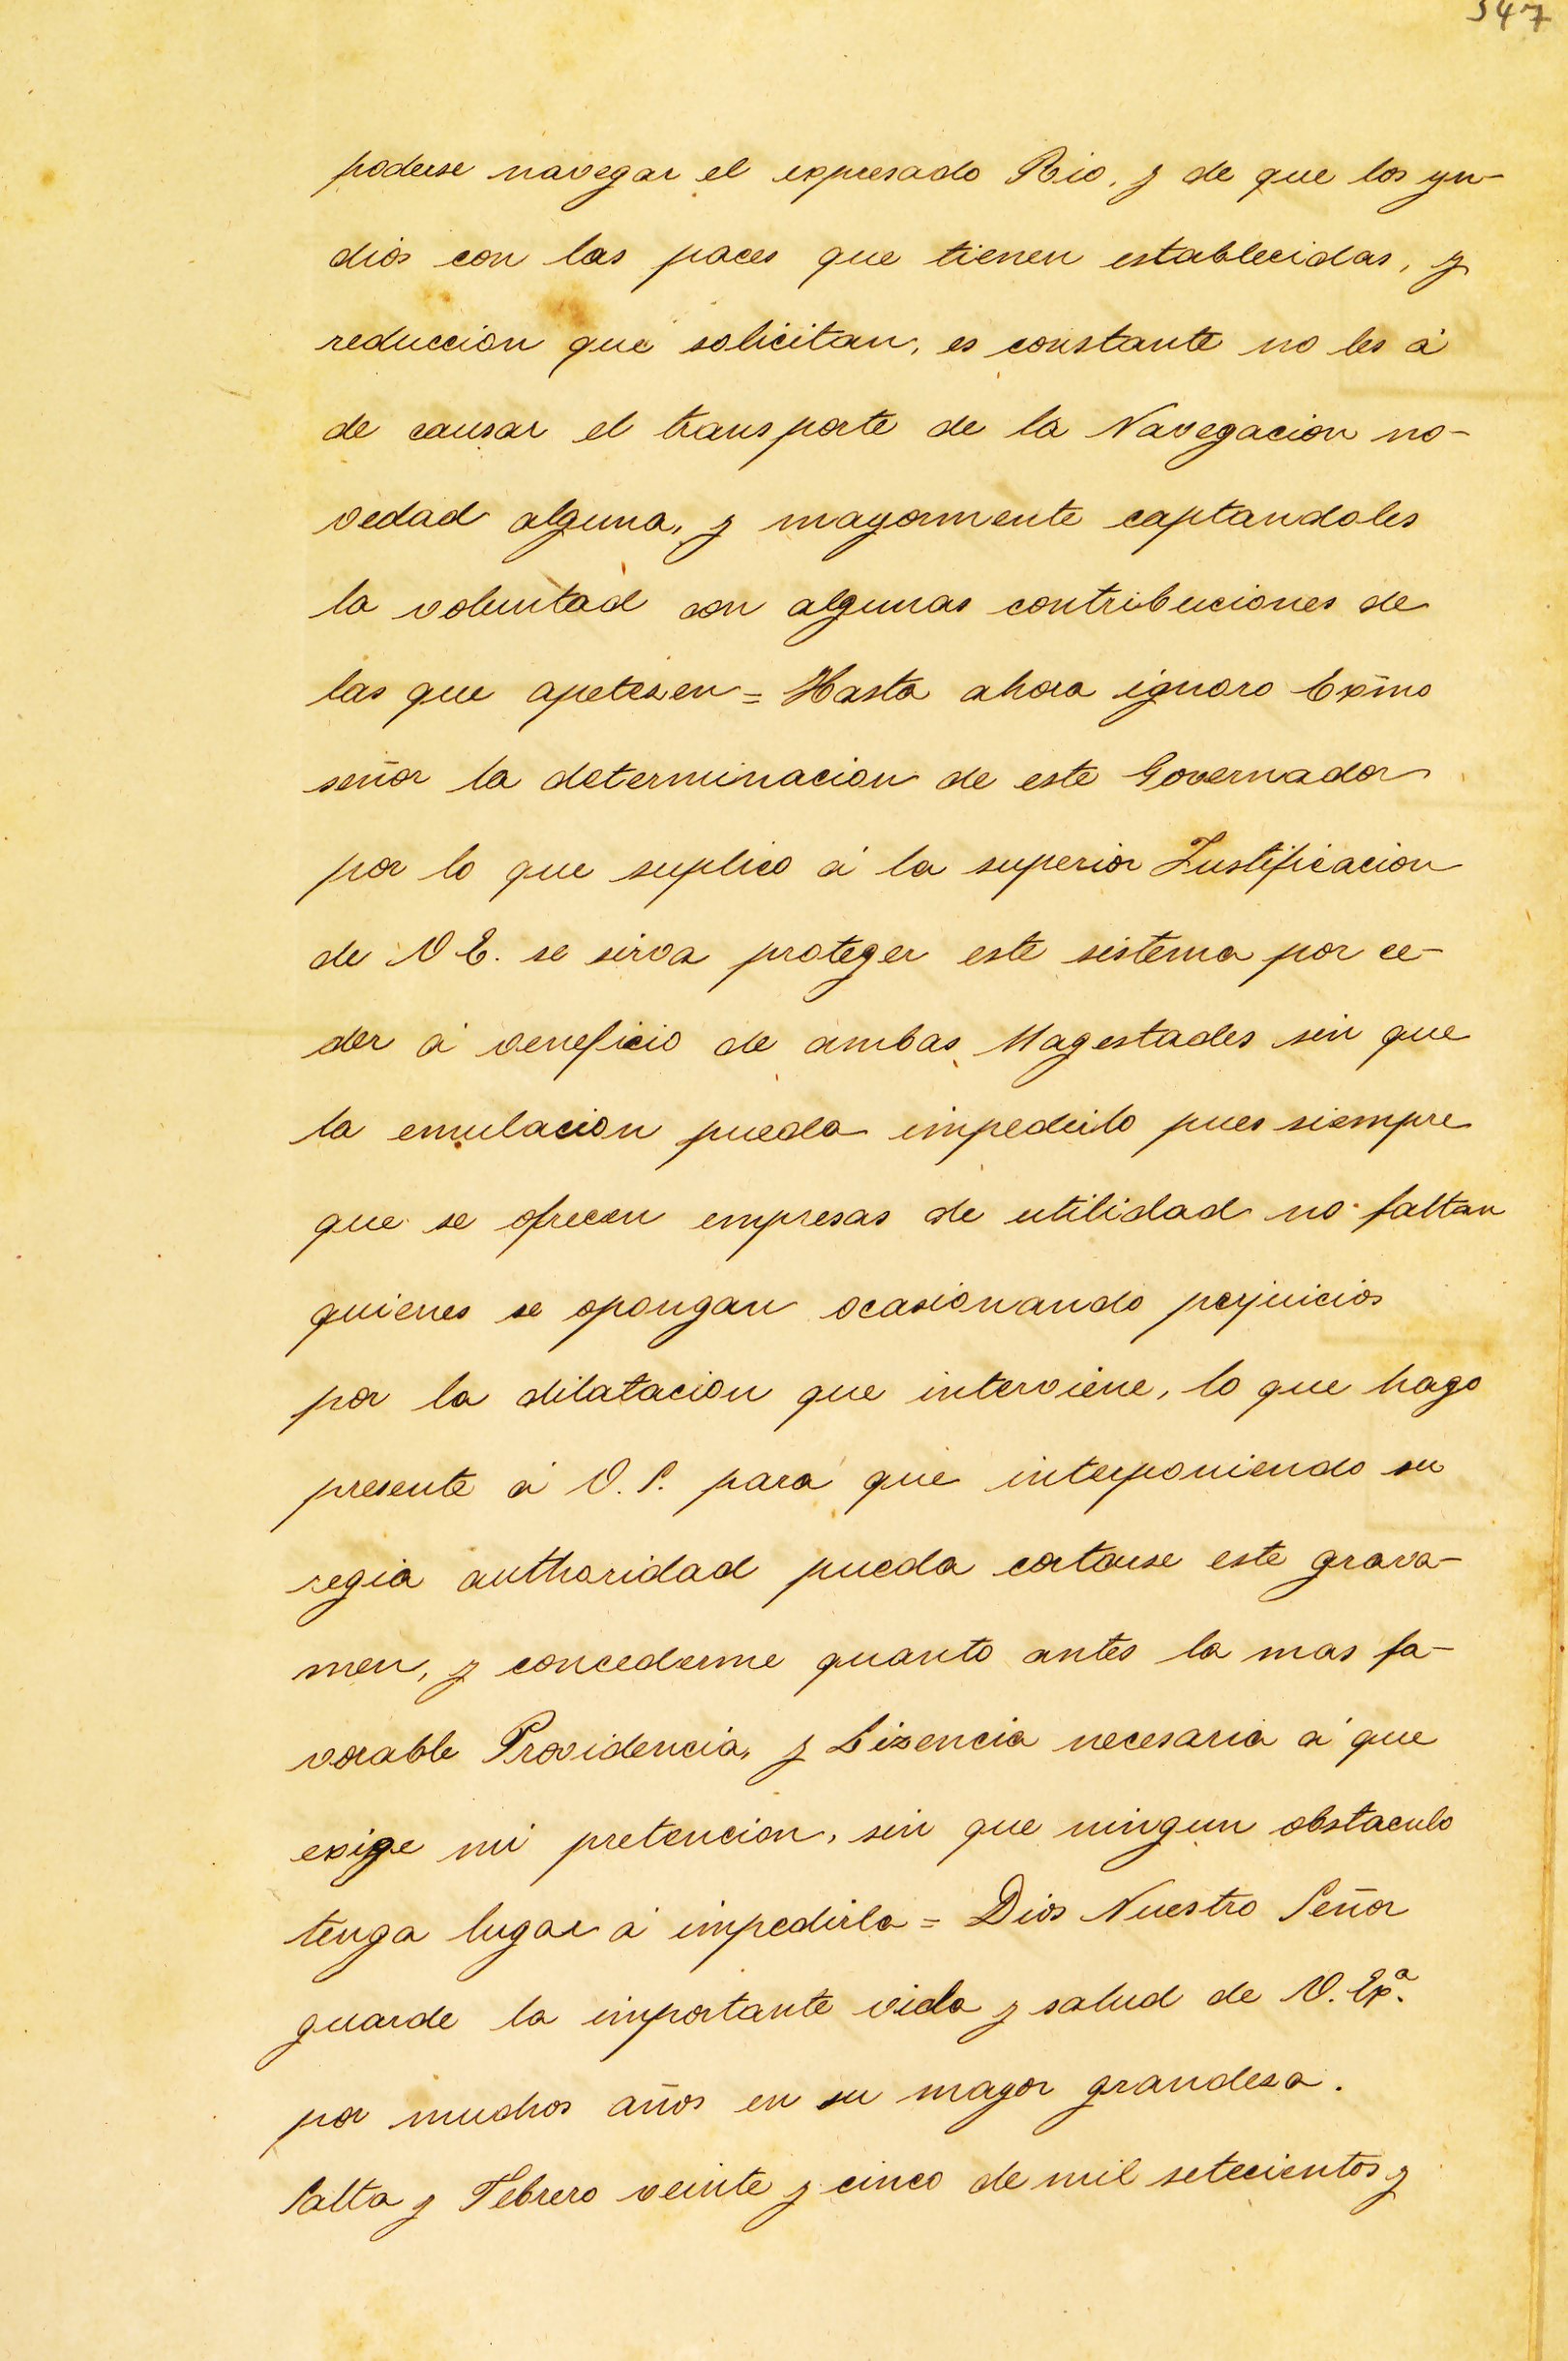 347
poderse navegar el expresado Rio, y de que los yn-
dios con las paces que tienen establecidas, y
reduccion que solicitan, es constante no les á
de causar el transporte de la Navegacion no-
vedad alguna, y mayormente captandoles
la voluntad con algunas contribuciones de
las que apetesen = Hasta ahora ignoro Exmo
señor la determinacion de este Governador
por lo que suplico á la superior Justificacion
de V E. se sirva proteger este sistema por ce-
der á veneficio de ambas Magestades sin que
la emulacion pueda impedirlo pues siempre
que se ofrecen empresas de utilidad no faltan
quienes se opongan ocasionando perjuicios
por la dilatacion que interviene, lo que hago
presente á V. S. para que interponiendo su
regia authoridad pueda cortarse este grava-
men, y concederme quanto antes la mas fa-
vorable Providencia, y Lizencia necesaria á que
exige mi pretencion, sin que ningun obstaculo
tenga lugar á impedirla = Dios Nuestro Señor
guarde la importante vida y salud de V. Exª.
por muchos años en su mayor grandesa.
Salta y Febrero veinte y cinco de mil setecientos y